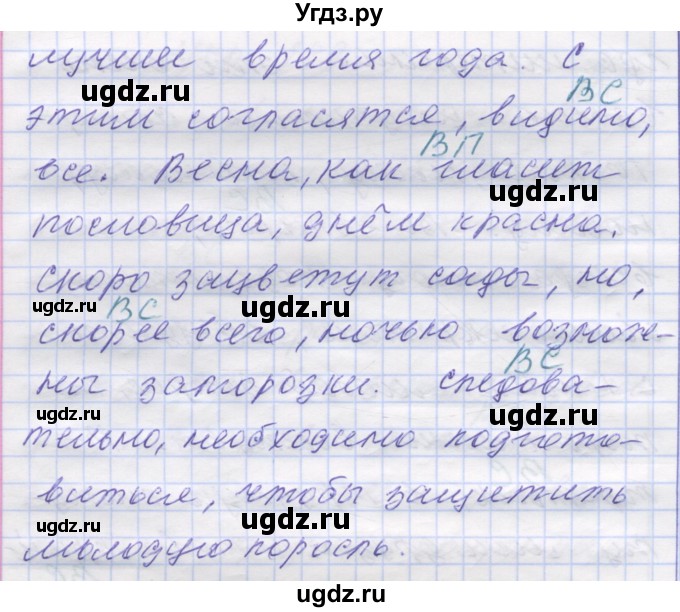 Угдз.ру
лучшее время года. С
ugdz.ru
ВС
этим согласятся, видимо,
ВП
все. Весна, как гласит
ugdz.ru
пословица, днём красна.
ugdz.ru
Скоро зацветут сады, но,
ugdz.ru
ugdz.ru
ВС
скорее всего, ночью возмож-
ugdz.ru
ВС
ны заморозки. Следова-
ugdz.ru
ugdz.ru
тельно, необходимо подгото-
ugdz.ru
виться, чтобы защитить
ugdz.ru
ugdz.ru
молодую поросль.
ugdz.ru